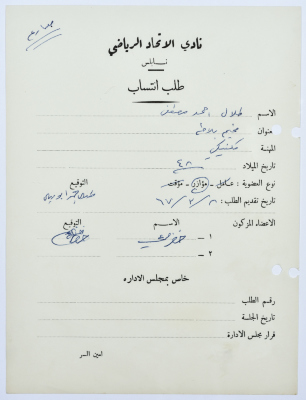 نادي الاتحاد الرياضي
نابلس
طلب انتساب
الاسم طلال احمد
عنوان مخيم بلاطة
المهنة مكنيكي
تاريخ الميلاد ٤٨
نوع العضوية : عامل - مؤازر - مؤقت التوقيع
تاريخ تقديم الطلب : ٨ / ٢ / ٦٧
الاعضاء المزكون الاسم التوقيع
١ -
٢ -
خاص بمجلس الاداره
رقم الطلب
تاريخ الجلسة
قرار مجلس الادارة
امين السر